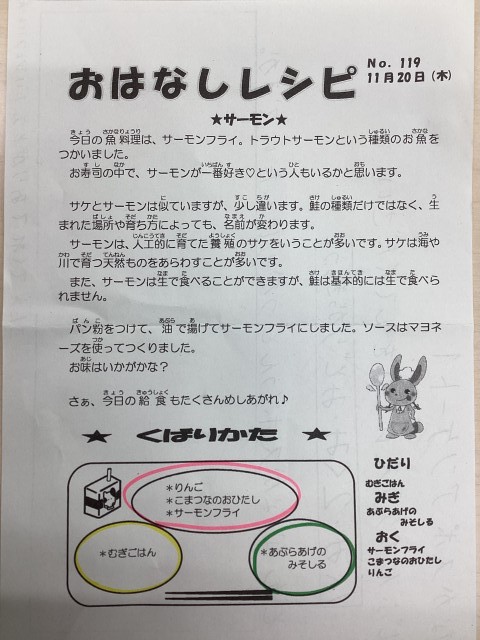 おはなしレシピ
No. 119
11月20日（木）
★サーモン★
今日の魚料理は、サーモンフライ。トラウトサーモンという種類のお魚を
つかいました。
お寿司の中で、サーモンが一番好き♡という人もいるかと思います。
サケとサーモンは似ていますが、少し違います。鮭の種類だけではなく、生
まれた場所や育ち方によっても、名前が変わります。
サーモンは、人工的に育てた養殖のサケをいうことが多いです。サケは海や
川で育つ天然ものをあらわすことが多いです。
また、サーモンは生で食べることができますが、鮭は基本的には生で食べら
れません。
パン粉をつけて、油で揚げてサーモンフライにしました。ソースはマヨネ
ーズを使ってつくりました。
お味はいかがかな？
さぁ、今日の給食もたくさんめしあがれ♪
★ くばりかた ★
＊りんご
＊こまつなのおひたし
＊サーモンフライ
＊むぎごはん
＊あぶらあげの
みそしる
ひだり
むぎごはん
みぎ
あぶらあげの
みそしる
おく
サーモンフライ
こまつなのおひたし
りんご